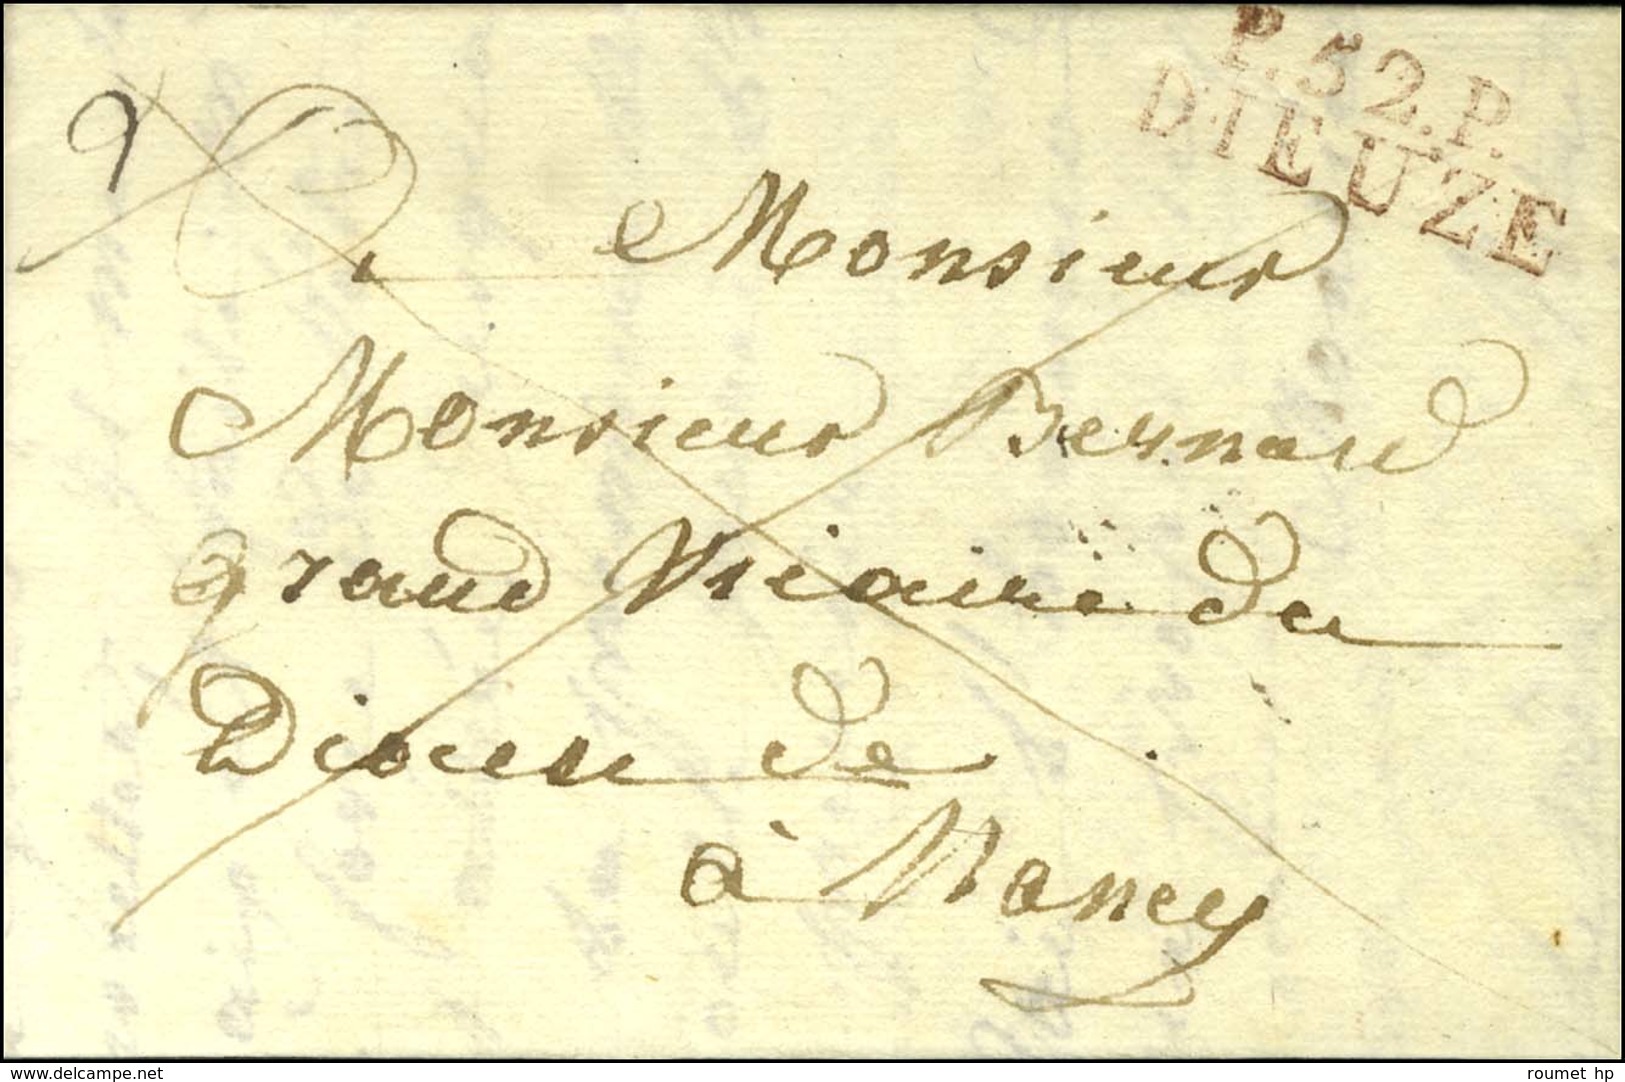 P.52.P.
DIEUZE
A Monsieur
Monsieur Bernard
grand Vicaire du
Diocese de
à Nancy
delcampe.net
roumet_hp